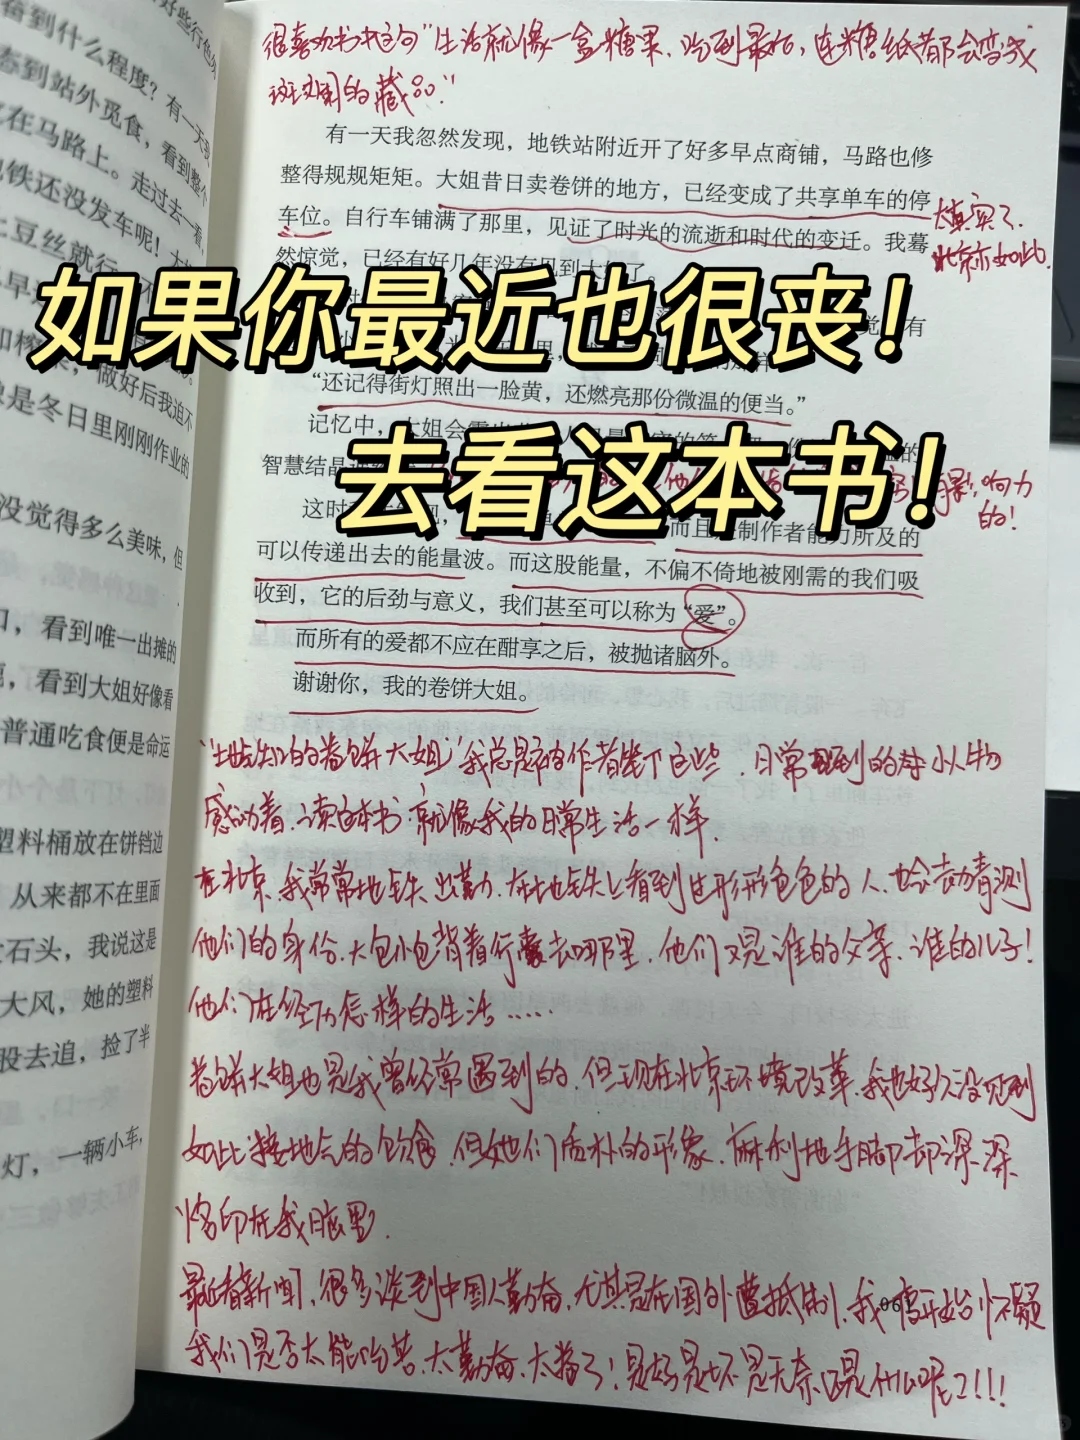 很喜欢书中这句“生活就像一盒糖果，吃到最后，连糖纸都会变成
斑斓的藏品。”
好些行色匆
奋到什么程度？有一天我
态到站外觅食，看到整个
在马路上。走过去一看，
地铁还没发车呢！大
土豆丝就行，不
早
和榨 ，做好后我迫不
是冬日里刚刚作业的
没觉得多么美味，但
口，看到唯一出摊的
，看到大姐好像看
普通吃食便是命运
塑料桶放在饼铛边
从来都不在里面
石头，我说这是
大风，她的塑料
股去追，捡了半
灯，一辆小车，
有一天我忽然发现，地铁站附近开了好多早点商铺，马路也修
整得规规矩矩。大姐昔日卖卷饼的地方，已经变成了共享单车的停
车位。自行车铺满了那里，见证了时光的流逝和时代的变迁。我蓦
然惊觉，已经有好几年没有见到大姐了。
太真实了，
北京亦如此，
如果你最近也很丧！
有
“还记得街灯照出一脸黄，还燃亮那份微温的便当。”
记忆中，大姐会
去看这本书！
智慧结晶
影响力
的！
这时
而且是制作者能力所及的
可以传递出去的能量波。而这股能量，不偏不倚地被刚需的我们吸
收到，它的后劲与意义，我们甚至可以称为“爱”。
而所有的爱都不应在酣享之后，被抛诸脑外。
谢谢你，我的卷饼大姐。
“地铁口的卷饼大姐”我总是被作者笔下这些，日常遇到的小人物
感动着，读这本书，就像我的日常生活一样，
在北京，我常常地铁出勤，在地铁上看到过形形色色的人，也会去猜测
他们的身份，大包小包背着行囊去哪里，他们又是谁的父亲，谁的儿子！
他们在经历怎样的生活……
卷饼大姐也是我曾经常遇到的，但现在北京环境改革，我也好久没见到
如此接地气的饮食，但她们质朴的形象，麻利地手脚却深深
烙印在我脑里，
最近看新闻，很多谈到中国人勤奋，尤其是在国外遭抵制，我 开始怀疑
我们是否太能吃苦，太勤奋，太卷了！是好是坏是无奈还是什么呢？！！！
061